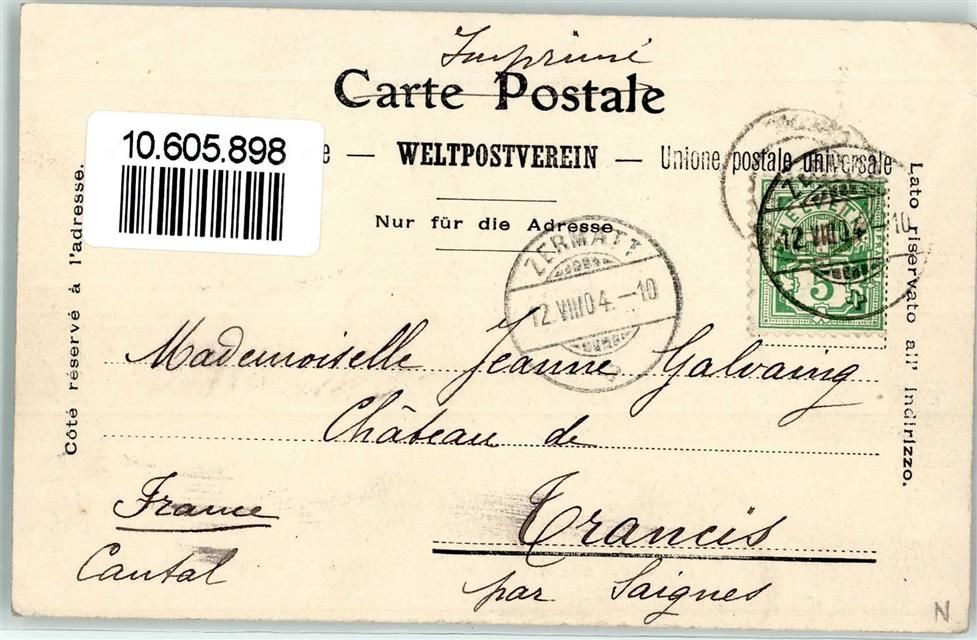 Imprimé
Carte Postale
10.605.898
e — WELTPOSTVEREIN — Unione postale universale
Nur für die Adresse
Côté réservé à l'adresse.
Lato riservato all' indirizzo.
ZERMATT
12.VIII.04.–10
12.VIII.04
10
HELVETIA
FRANCO
5
Mademoiselle Jeanne Galvaing
Château de
Trancis
par Saignes
France
Cantal
N